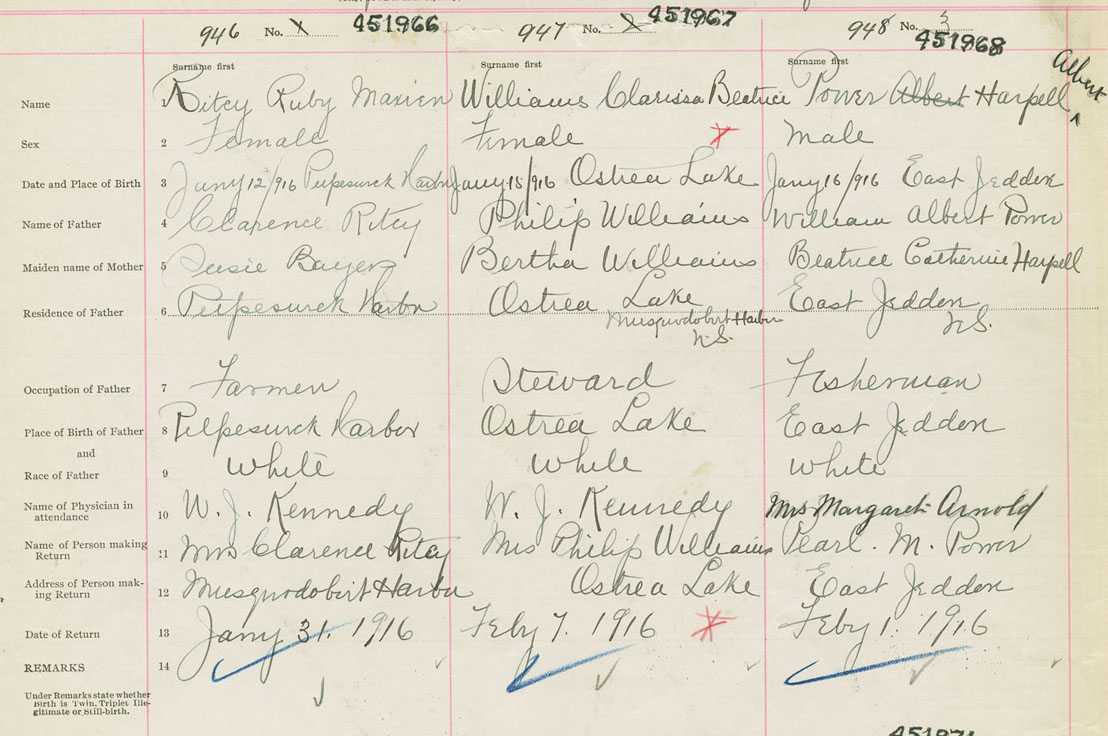 946 No. X 451966 947 No. X 451967 948 No. 3 451968
Surname first Surname first Surname first
Albert
Name 1 Ritcy Ruby Marien Williams Clarissa Beatrice Power Albert Harpell ^
Sex 2 Female Female Male
Date and Place of Birth 3 Jany 12/916 Petpesurck Harbor Jany 15/916 Ostrea Lake Jany 16/916 East Jeddore
Name of Father 4 Clarence Ritcy Philip Williams William Albert Power
Maiden name of Mother 5 Susie Bayers Bertha Williams Beatrice Catherine Harpell
Residence of Father 6 Petpesurck Harbor Ostrea Lake East Jeddore
Musquodobirt Harbor N.S.
N.S.
Occupation of Father 7 Farmer Steward Fisherman
Place of Birth of Father 8 Petpesurck Harbor Ostrea Lake East Jeddore
and
Race of Father 9 White White White
Name of Physician in attendance 10 W. J. Kennedy W. J. Kennedy Mrs Margaret Arnold
Name of Person making Return 11 Mrs Clarence Ritcy Mrs Philip Williams Pearl. M. Power
Address of Person mak-ing Return 12 Musquodobirt Harbor Ostrea Lake East Jeddore
Date of Return 13 Jany 31. 1916 Feby 7. 1916 Feby 1. 1916
REMARKS 14
Under Remarks state whether
Birth is Twin, Triplet Ille-
gitimate or Still-birth.